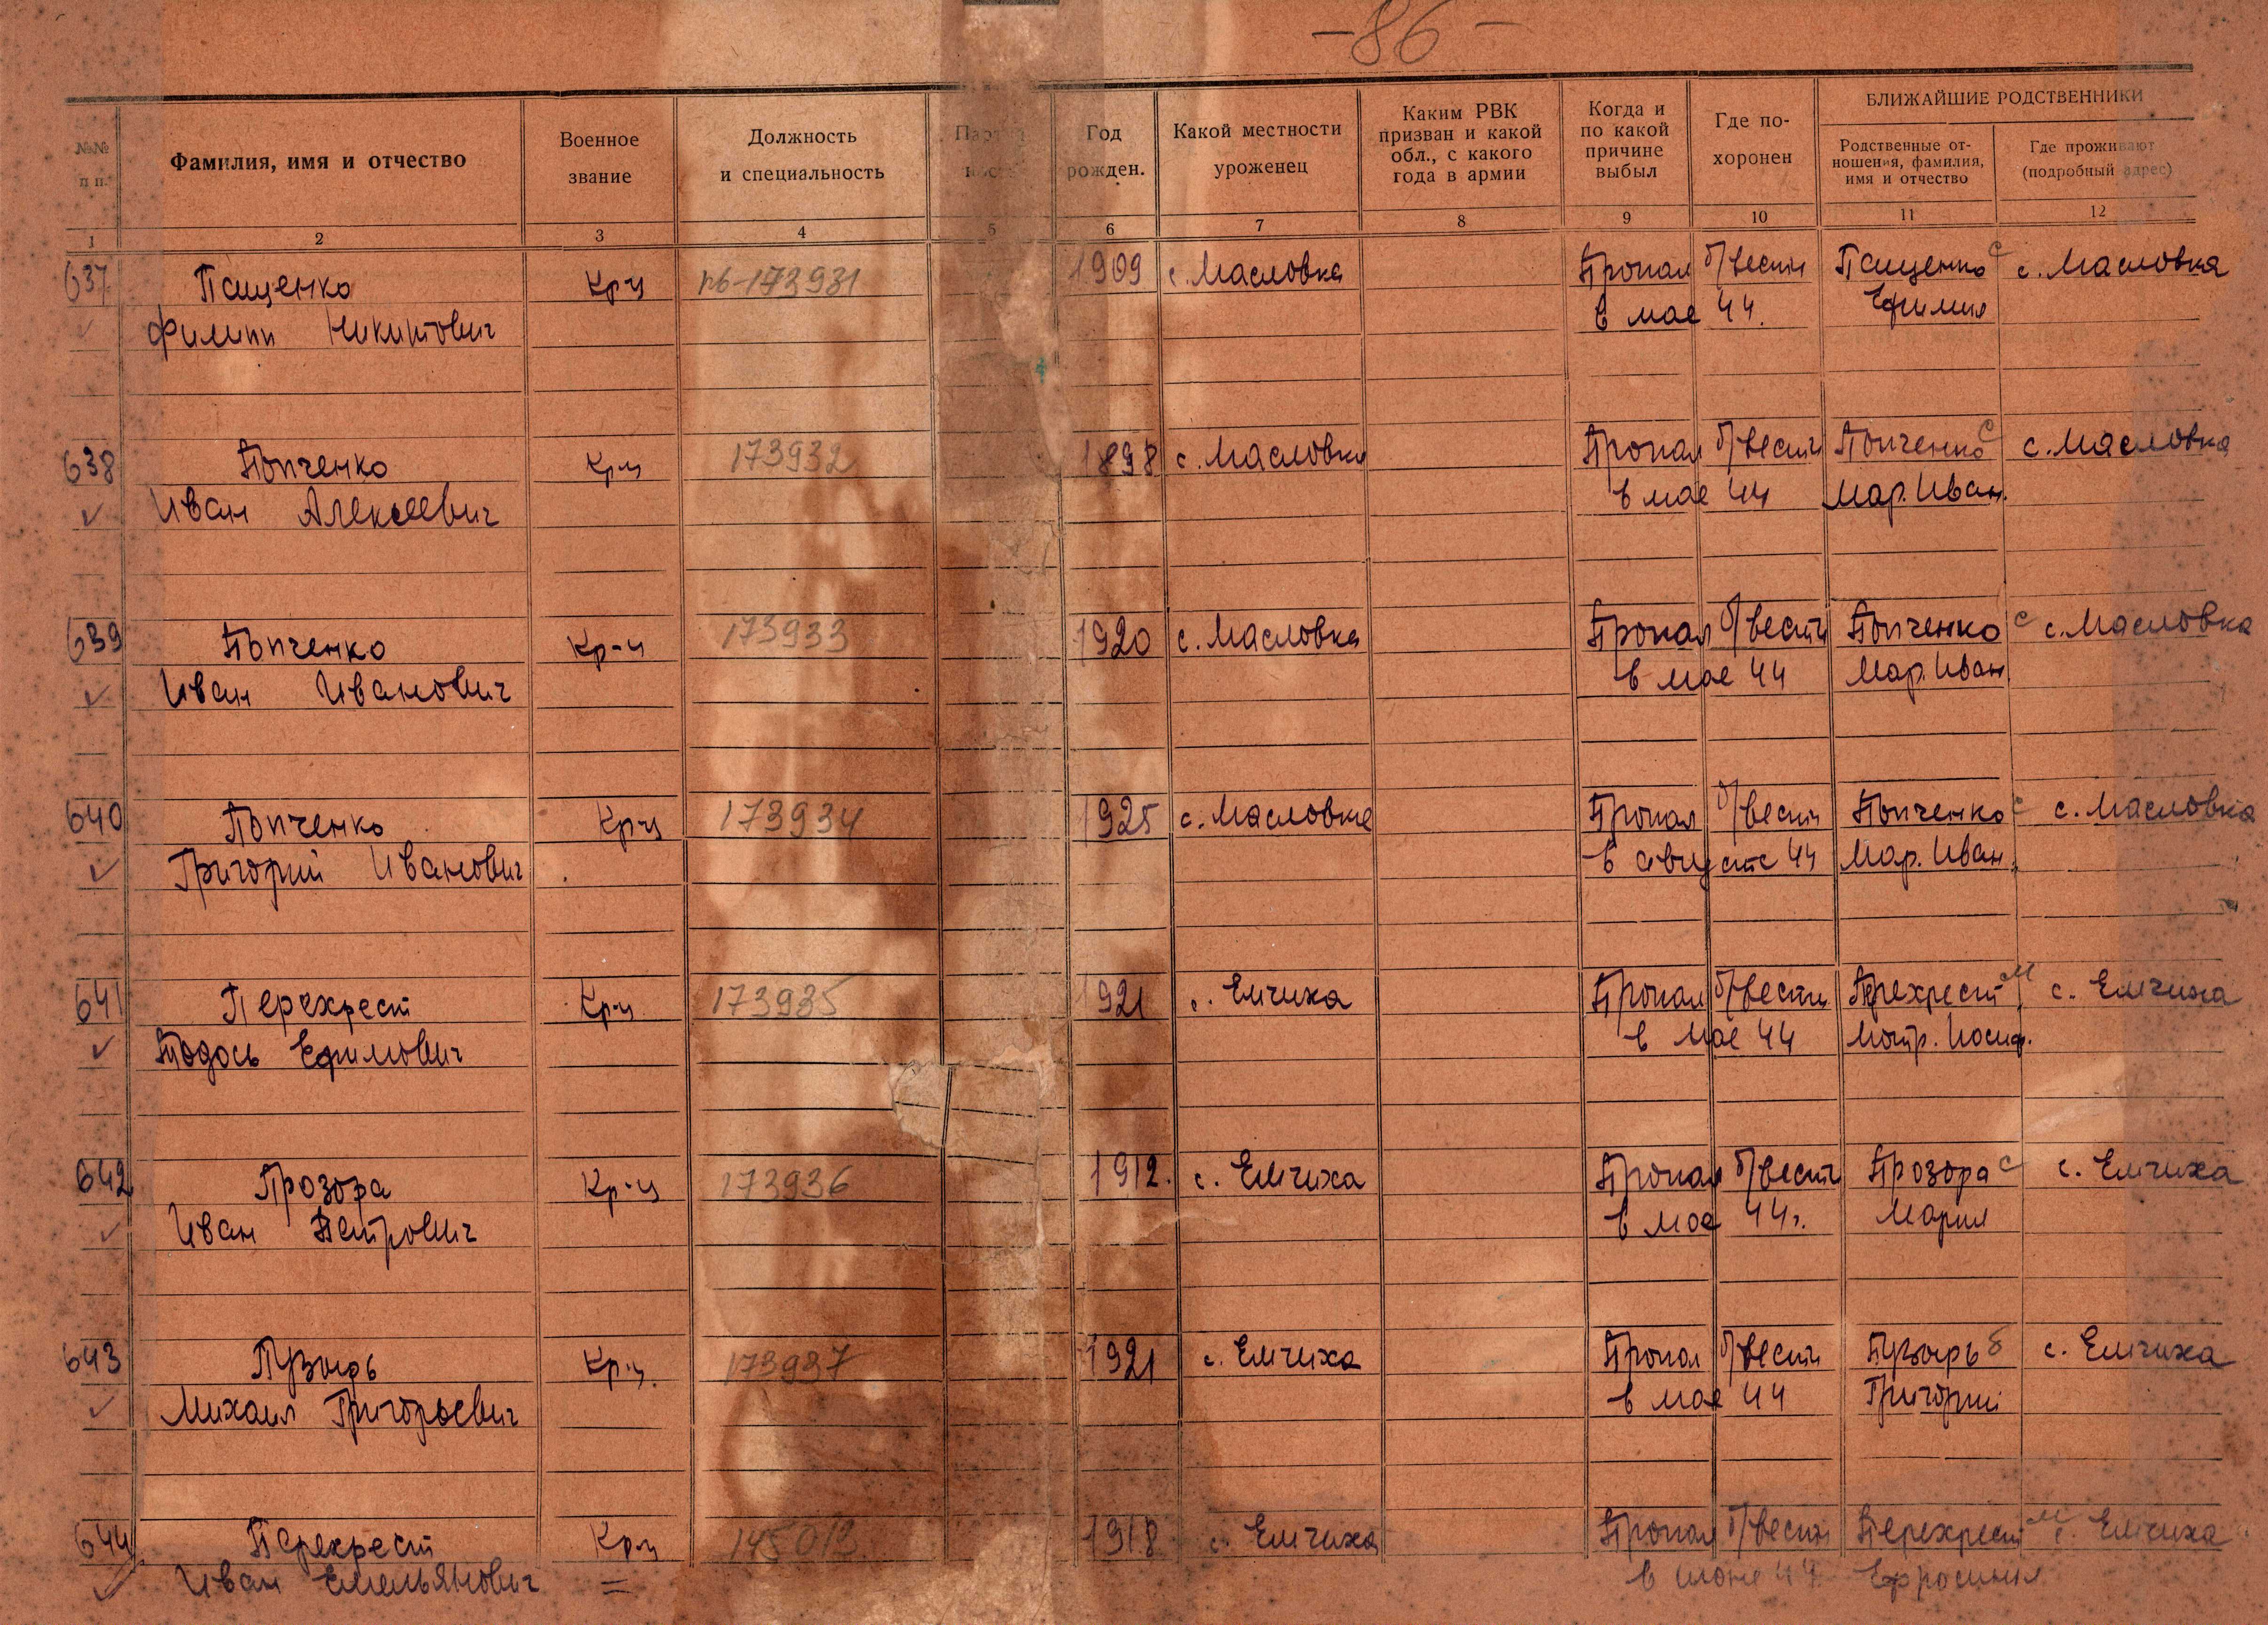 -86-
БЛИЖАЙШИЕ РОДСТВЕННИКИ
№№ п п. Фамилия, имя и отчество Военное звание Должность и специальность Год рожден. Какой местности уроженец Каким РВК призван и какой обл., с какого года в армии Когда и по какой причине выбыл Где по-хоронен Родственные от-ношения, фамилия, имя и отчество Где проживают (подробный адрес)
1 2 3 4 5 6 7 8 9 10 11 12
637 Пащенко Кр-ц пб-173931 1909 с. Масловка Пропал б/вести Пащенко с с. Масловка
Филипп Никитович в мае 44. Ефимия
638 Попченко Кр-ц 173932 1898 с. Масловка Пропал б/вести Попченко с с. Масловка
Иван Алексеевич в мае 44 Мар. Иван.
639 Попченко Кр-ц 173933 1920 с. Масловка Пропал б/вести Попченко с с. Масловка
Иван Иванович в мае 44 Мар. Иван
640 Попченко Кр-ц 173934 1925 с. Масловка Пропал б/вести Попченко с с. Масловка
Григорий Иванович в августе 44 Мар. Иван.
641 Перехрест Кр-ц 173935 1921 с. Емчиха Пропал б/вести Перехрест м с. Емчиха
Тодось Ефимович в мае 44 Мотр. Иосиф.
642 Прозора Кр-ц 173936 1912. с. Емчиха Пропал б/вести Прозора с с. Емчиха
Иван Петрович в мае 44г. Мария
643 Пузырь Кр-ц. 173937 1921 с. Емчиха Пропал б/вести Пузырь б с. Емчиха
Михаил Григорьевич в мае 44 Григорий
644 Перехрест Кр-ц 145013 1918 с. Емчиха Пропал б/вести Перехрест м с. Емчиха
Иван Емельянович = в июне 44 Ефросиния